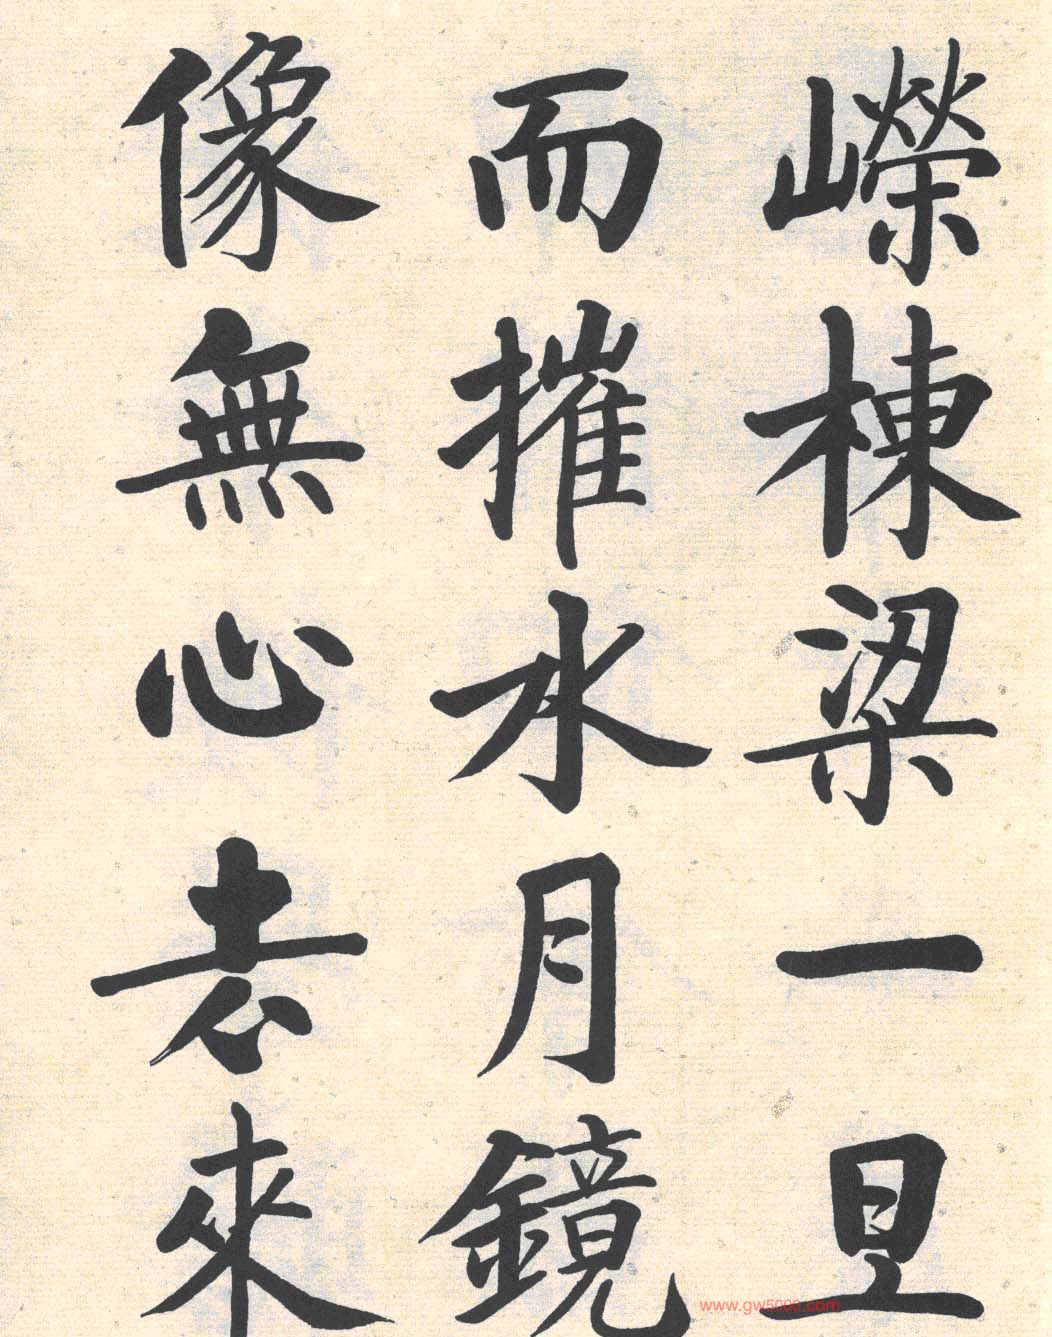 嶸棟梁一旦
而摧水月鏡
像無心去來
www.gw5000.com